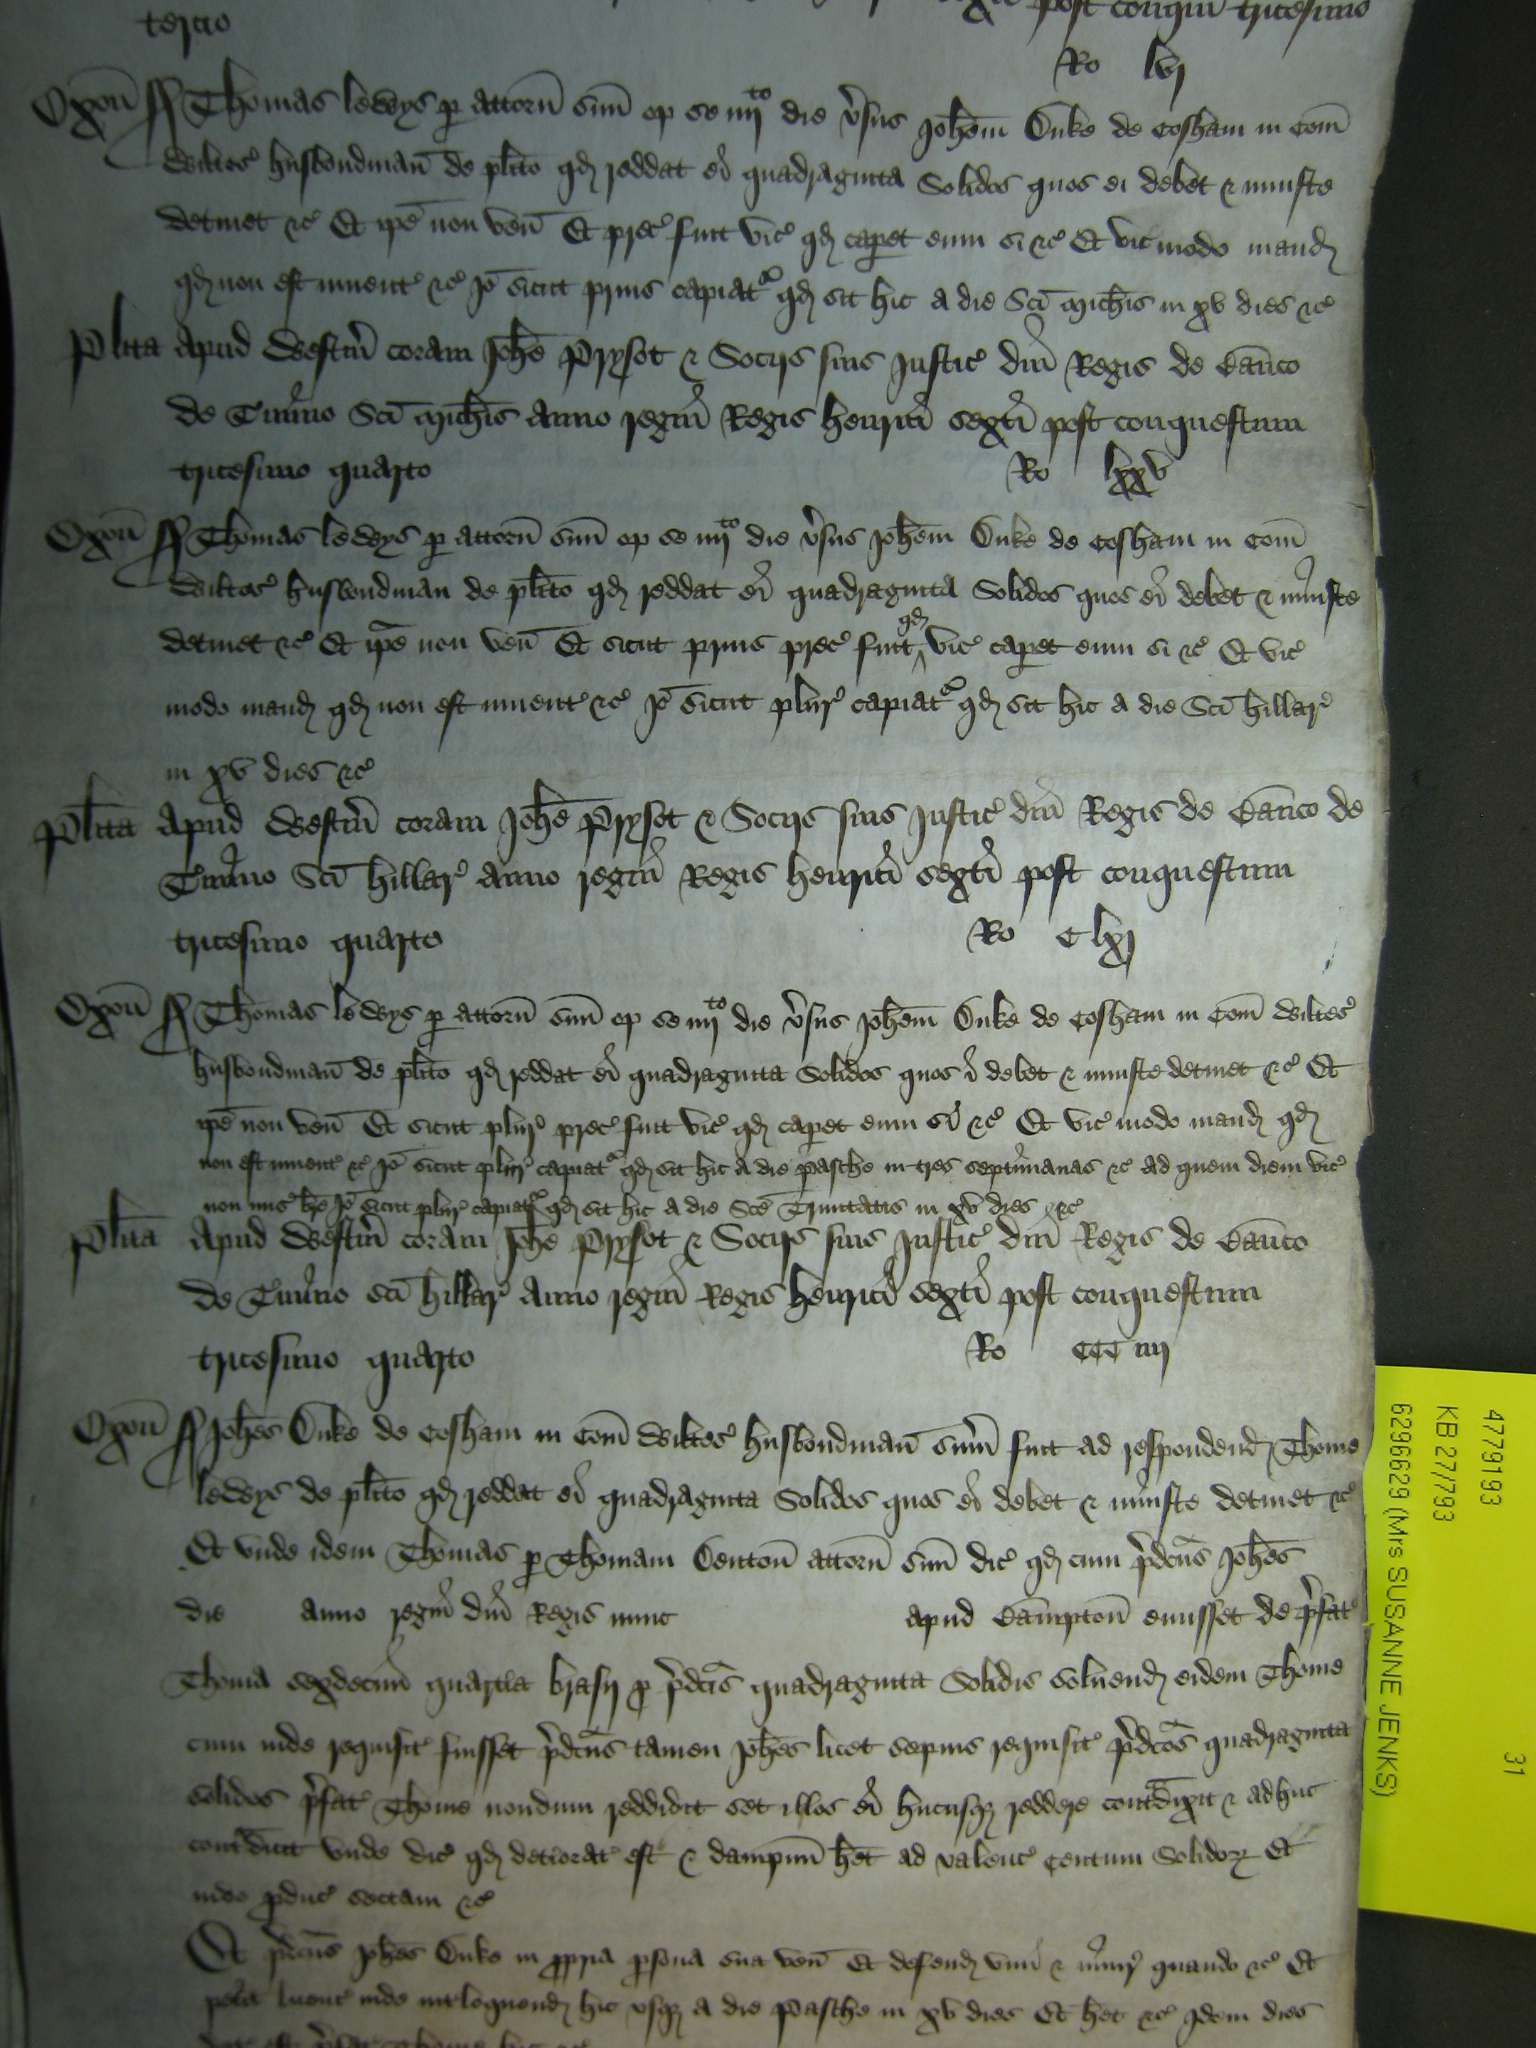 post conqm tricesimo
tercio
Ro lvj
Oxon ss Thomas lewys p attorn suu op se iiijto die vsus Johem Duke de Cosham in Com
Wiltes husbondman de plito qd reddat ei quadraginta solidos quos ei debet & iniuste
detinet &c Et ipe non ven Et prec fuit vic qd caperet eum si &c Et vic modo mand
qd non est invent &c Jo sicut prius capiatr qd sit hic a die Sci Michis in xv dies &c
Plita apud Westm coram Johe Prysot & Socijs suis Justic dni Regis de Banco
de Tmino Sci Michis Anno regni Regis Henrici sexti post conquestum
tricesimo quarto Ro lxxv
Oxon ss Thomas lewys p attorn suu op se iiijto die vsus Johem Duke de Cosham in Com
Wiltes husbondman de plito qd reddat ei quadraginta Solidos quos ei debet & iniuste
detinet &c Et ipe non ven Et sicut prius prec fuit qd vic caperet eum si &c Et vic
modo mand qd non est invent &c Jo sicut plur capiatr qd sit hic a die Sci Hillar
in xv dies &c
Plita apud Westm coram Johe Prysot & Socijs suis Justic dni Regis de Banco de
Tmino Sci Hillar Anno regni Regis Henrici sexti post conquestum
tricesimo quarto Ro C lxj
Oxon ss Thomas lewys p attorn suu op se iiijto die vsus Johem Duke de Cosham in Com Wiltes
husbondman de plito qd reddat ei quadraginta Solidos quos ei debet & iniuste detinet &c Et
ipe non ven Et sicut plur prec fuit vic qd caperet eum si &c Et vic modo mand qd
non est invent &c Jo sicut plur capiatr qd sit hic a die Pasche in tres septimanas &c ad quem diem vic
non mis bre Jo sicut plur capiatr qd sit hic a die Sce Trinitatis in xv dies &c
Plita apud Westm coram Johe Prysot & Socijs suis Justic dni Regis de Banco
de Tmino Sci Hillar Anno regni Regis Henrici sexti post conquestum
tricesimo quarto Ro CCC iiij
Oxon ss Johes Duke de Cosham in Com Wiltes husbondman sum fuit ad respondend Thome
lewys de plito qd reddat ei quadraginta Solidos quos ei debet & iniuste detinet &c
Et unde idem Thomas p Thomam Benton attorn suu dic qd cum pdcus Johes
die anno regni dni Regis nunc apud Bampton emisset de pfat
Thoma sexdecim quartia brasij p pdcis quadraginta Solidis solvend eidem Thome
cum inde requisit fuisset pdcus tamen Johes licet sepius requisit pdcos quadraginta
solidos pfat Thome nondum reddidit set illos ei hucusq reddere contradixit & adhuc
contradicit unde dic qd deteriorat est & dampnu het ad valenc Centum Solidor Et
inde pduc sectam &c
Et pdcus Johes Duke in ppria psona sua ven Et defend vim & iniur quando &c Et
petit licenc inde interloquend hic usq a die Pasche in xv dies Et het &c Idem dies
dat est pfat Thome hic &c
4779193
KB 27/793
6296629 (Mrs SUSANNE JENKS)
31